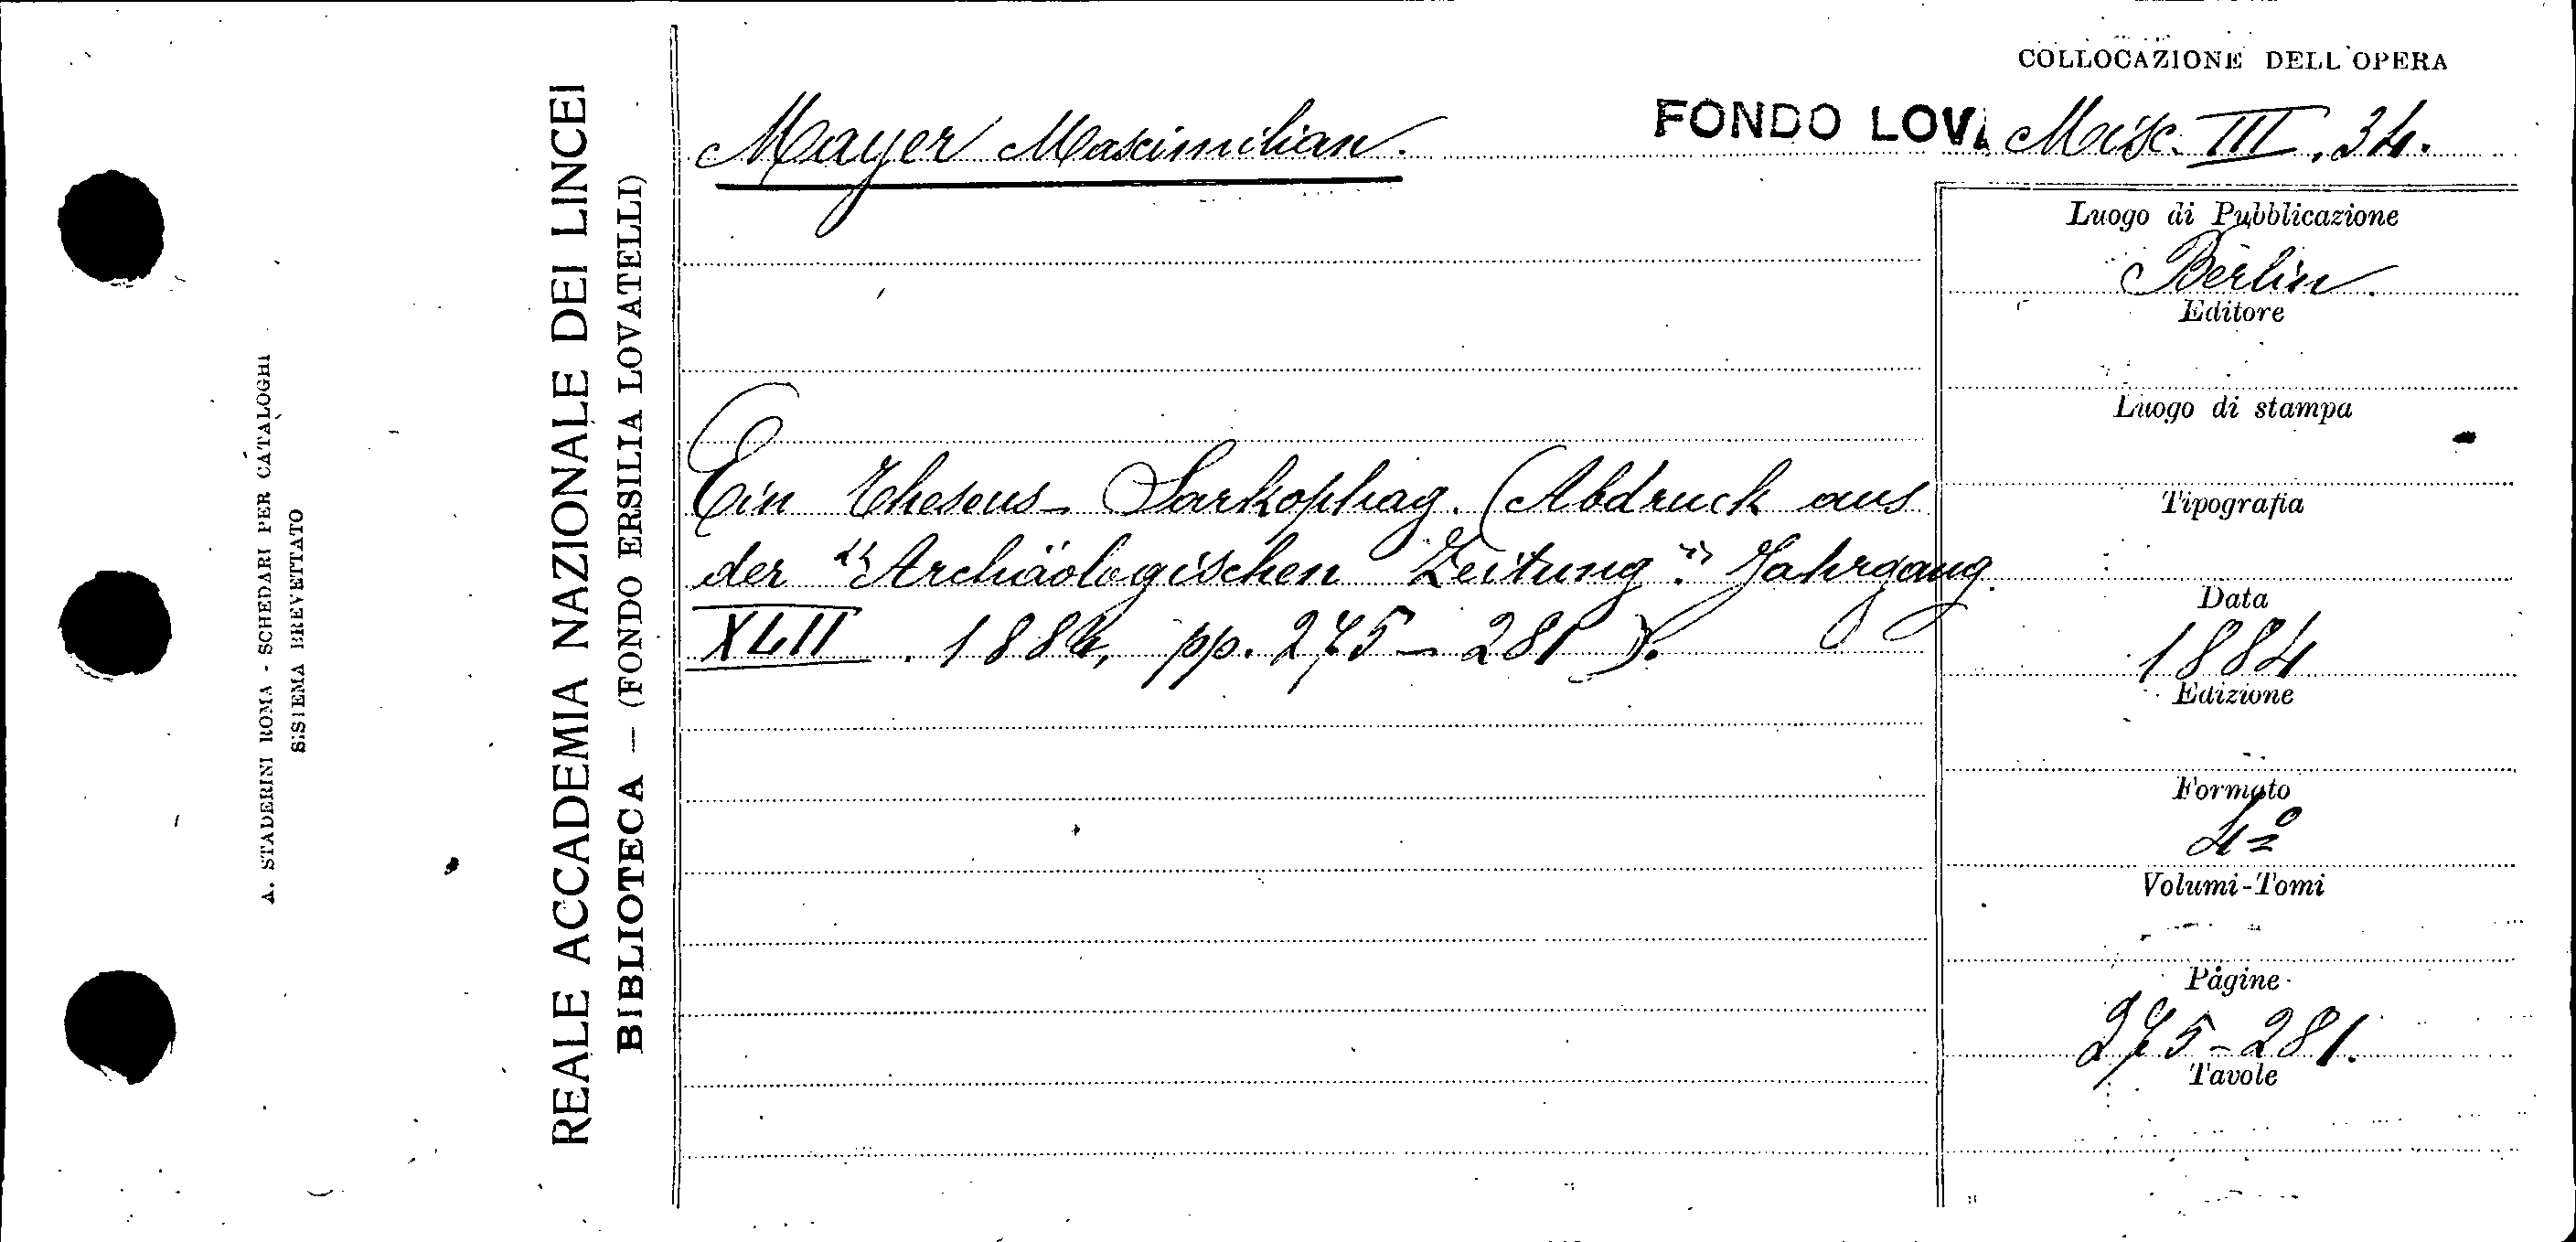 COLLOCAZIONE DELL'OPERA
Mayer Maximilian.
FONDO LOV. Misc. III. 34.
REALE ACCADEMIA NAZIONALE DEI LINCEI
BIBLIOTECA — (FONDO ERSILIA LOVATELLI)
A. STADERINI ROMA - SCHEDARI PER CATALOGHI
SISTEMA BREVETTATO
Ein Theseus-Sarkophag. (Abdruck aus
der "Archäologischen Zeitung" Jahrgang
XLII. 1884, pp. 275-281).
Luogo di Pubblicazione
Berlin
Editore
Luogo di stampa
Tipografia
Data
1884
Edizione
Formato
4º
Volumi-Tomi
Pagine
275-281.
Tavole